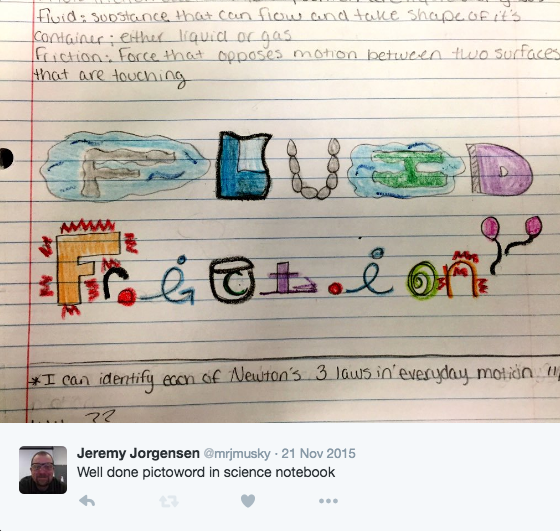 Fluid: substance that can flow and take shape of it's
container; either liquid or gas
Friction: Force that opposes motion between two surfaces
that are touching
FLUID
Friction
*I can identify each of Newton's 3 laws in everyday motion
Jeremy Jorgensen @mrjmusky · 21 Nov 2015
Well done pictoword in science notebook